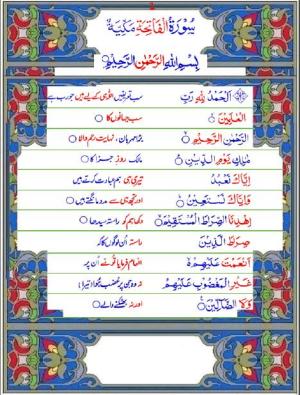 سُوْرَةُ الْفَاتِحَةِ مَكِّيَّةٌ
بِسْمِ اللهِ الرَّحْمٰنِ الرَّحِيْمِ
اَلْحَمْدُ لِلّٰهِ رَبِّ سب تعریفیں اللہ ہی کے لیے ہیں جو رب ہے
الْعٰلَمِيْنَ سب جہانوں کا
الرَّحْمٰنِ الرَّحِيْمِ بڑا مہربان، نہایت رحم والا
مٰلِكِ يَوْمِ الدِّيْنِ مالک روزِ جزا کا
اِيَّاكَ نَعْبُدُ تیری ہی ہم عبادت کرتے ہیں
وَاِيَّاكَ نَسْتَعِيْنُ اور تجھ ہی سے مدد مانگتے ہیں
اِهْدِنَا الصِّرَاطَ الْمُسْتَقِيْمَ دکھا ہم کو راستہ سیدھا
صِرَاطَ الَّذِيْنَ راستہ اُن لوگوں کا کہ
اَنْعَمْتَ عَلَيْهِمْ انعام فرمایا تو نے اُن پر
غَيْرِ الْمَغْضُوْبِ عَلَيْهِمْ نہ وہ جن پر غضب ہوا تیرا
وَلَا الضَّآلِّيْنَ اور نہ بھٹکنے والے